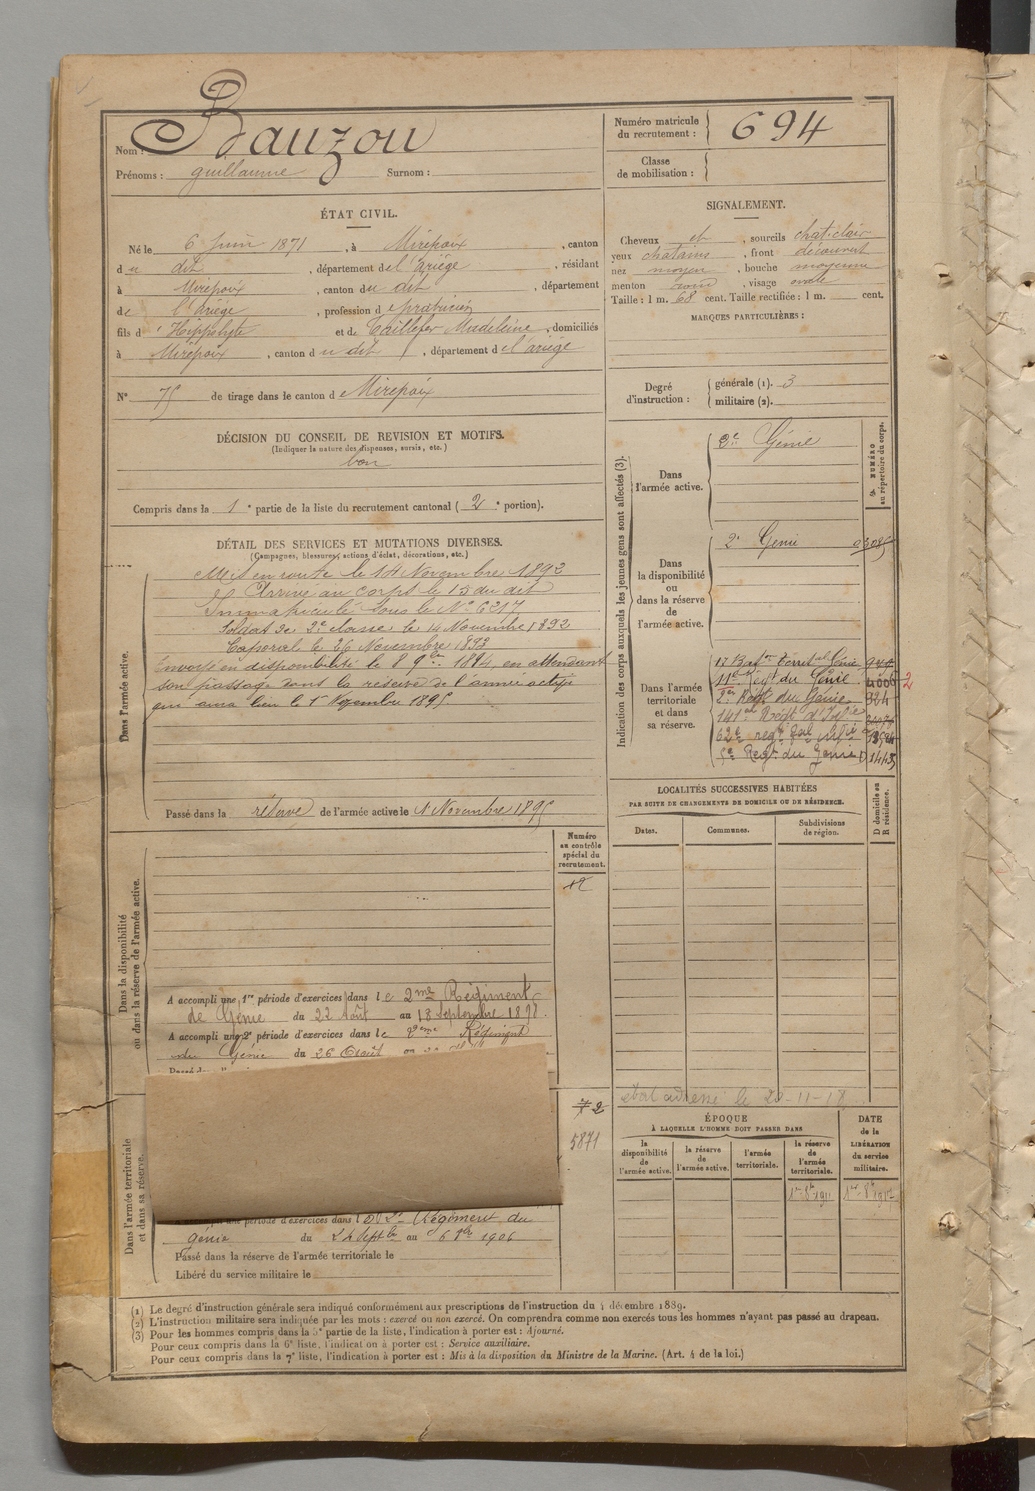 Nom : Bauzou
Prénoms : guillaume Surnom :
ÉTAT CIVIL.
Né le 6 Juin 1871, à Mirepoix, canton
du dit, département de l'Ariège, résidant
à Mirepoix, canton du dit, département
de l'Ariège, profession de praticien
fils d'Hippolyte et de Caillefer Madeleine, domiciliés
à Mirepoix, canton du dit, département de l'ariège
N° 75 de tirage dans le canton de Mirepoix
DÉCISION DU CONSEIL DE REVISION ET MOTIFS.
(Indiquer la nature des dispenses, sursis, etc.)
bon
Compris dans la 1e partie de la liste du recrutement cantonal (2e portion).
DÉTAIL DES SERVICES ET MUTATIONS DIVERSES.
(Campagnes, blessures, actions d'éclat, décorations, etc.)
Dans l'armée active.
Mis en route le 14 Novembre 1892
Arrivé au corps le 15 du dit
Immatriculé sous le N° 6217
Soldat de 2e classe le 14 Novembre 1892
Caporal le 26 Novembre 1893
Envoyé en disponibilité le 8 9bre 1894, en attendant
son passage dans la réserve de l'armée active
qui aura lieu le 1er Novembre 1895
Passé dans la réserve de l'armée active le 1 Novembre 1895
Numéro
au contrôle
spécial du
recrutement.
Dans la disponibilité
ou dans la réserve de l'armée active.
A accompli une 1re période d'exercices dans le 2me Régiment
de Génie du 22 Août au 18 Septembre 1898.
A accompli une 2e période d'exercices dans le 2eme Régiment
du Génie du 26 Août au
Dans l'armée territoriale
et dans sa réserve.
72
5871
une période d'exercices dans le Régiment du
génie du 24 Septbre au 6 9bre 1906
Passé dans la réserve de l'armée territoriale le
Libéré du service militaire le
Numéro matricule
du recrutement : 694
Classe
de mobilisation :
SIGNALEMENT.
Cheveux et, sourcils chat-clair
yeux chatains, front découvert
nez moyen, bouche moyenne
menton rond, visage ovale
Taille : 1 m. 68 cent. Taille rectifiée : 1 m. cent.
MARQUES PARTICULIÈRES :
Degré
d'instruction :
générale (1). 3
militaire (2).
Indication des corps auxquels les jeunes gens sont affectés (3).
NUMÉRO
au répertoire du corps.
Dans
l'armée active.
2e Génie
Dans
la disponibilité
ou
dans la réserve
de
l'armée active.
2e Génie
Dans l'armée
territoriale
et dans
sa réserve.
17 Baton Territal Génie
11e Regt du Génie 4006 2
2e Regt du Génie 824
141e Régt d'Infie
62e regt Ral infie
5e Regt du Génie 1443
LOCALITÉS SUCCESSIVES HABITÉES
PAR SUITE DE CHANGEMENTS DE DOMICILE OU DE RÉSIDENCE.
Dates. Communes. Subdivisions
de région.
D domicile ou
R résidence.
état adressé le 20-11-18
ÉPOQUE
À LAQUELLE L'HOMME DOIT PASSER DANS
la
disponibilité
de
l'armée active.
la réserve
de
l'armée active.
l'armée
territoriale.
la réserve
de
l'armée
territoriale.
DATE
de la
LIBÉRATION
du service
militaire.
1er 8bre 1911
1er 8bre 1917
(1) Le degré d'instruction générale sera indiqué conformément aux prescriptions de l'instruction du 4 décembre 1889.
(2) L'instruction militaire sera indiquée par les mots : exercé ou non exercé. On comprendra comme non exercés tous les hommes n'ayant pas passé au drapeau.
(3) Pour les hommes compris dans la 5e partie de la liste, l'indication à porter est : Ajourné.
Pour ceux compris dans la 6e liste, l'indication à porter est : Service auxiliaire.
Pour ceux compris dans la 7e liste, l'indication à porter est : Mis à la disposition du Ministre de la Marine. (Art. 4 de la loi.)